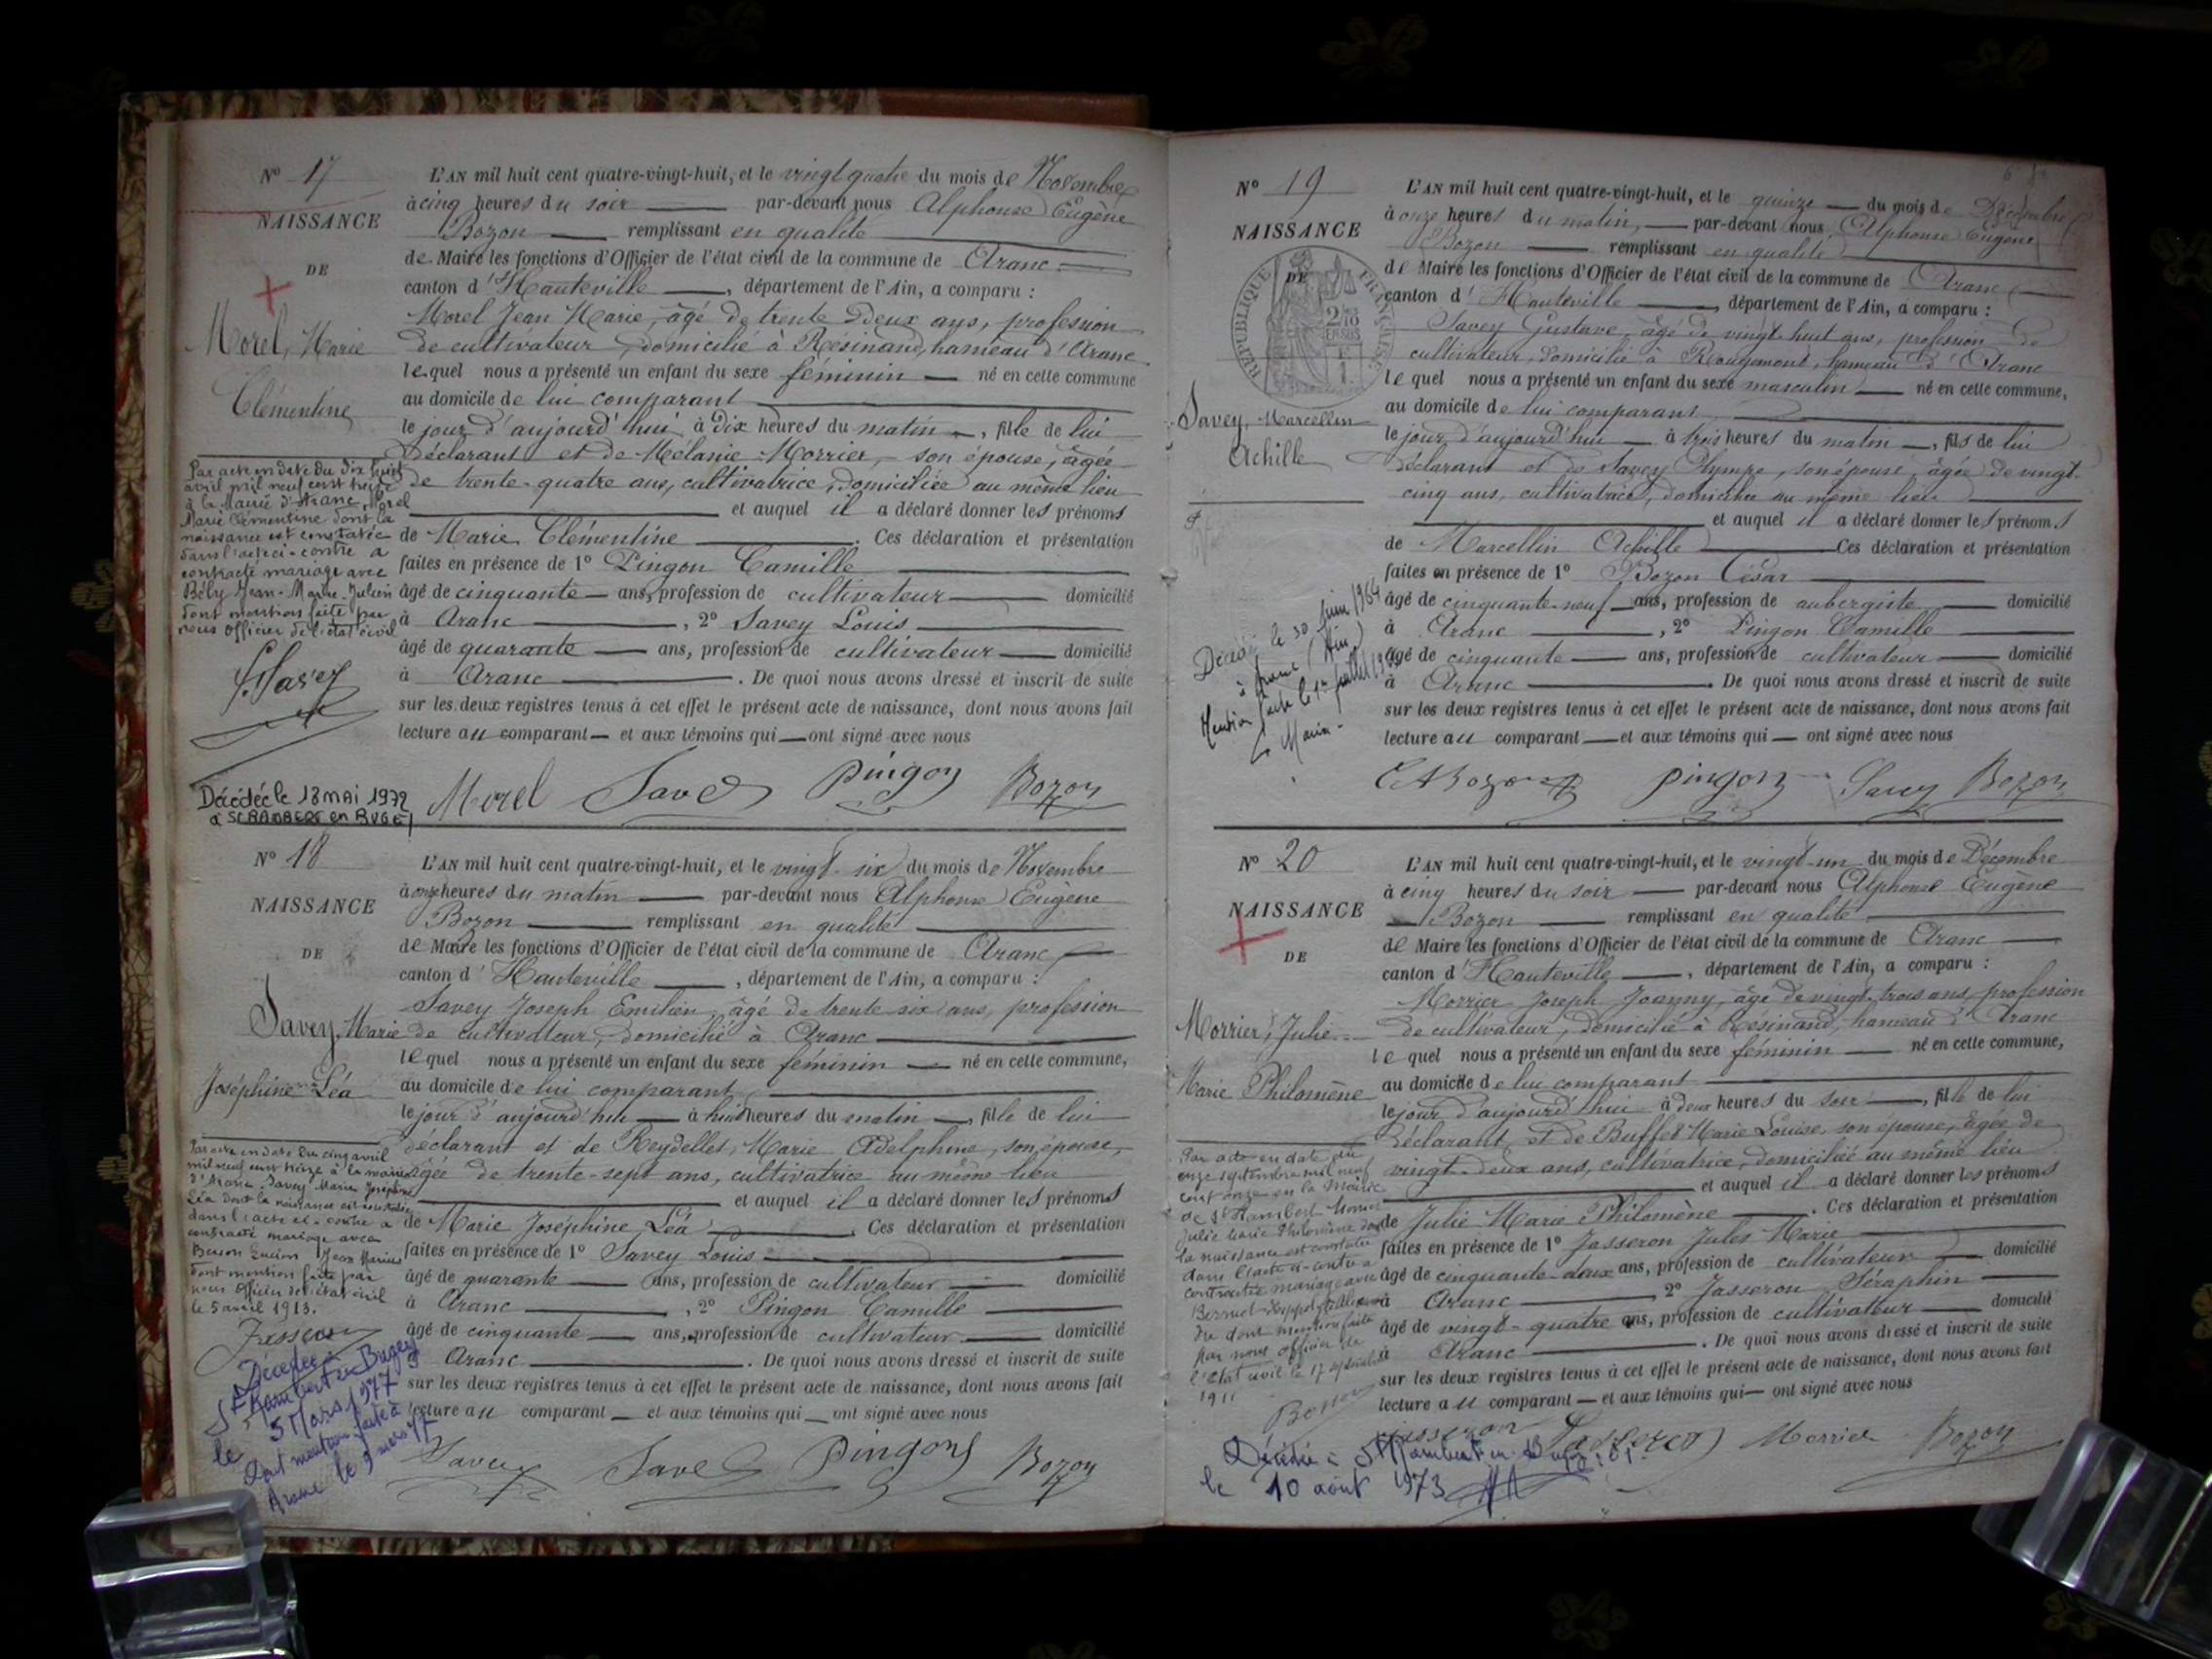 Nº 17
NAISSANCE
DE
Morel, Marie
Clémentine
Par acte en date du dix huit
avril mil neuf cent treize
à la Mairie d'Aranc, Morel
Marie Clémentine dont la
naissance est constatée
dans l'acte ci-contre a
contracté mariage avec
Jean-Marie-Julien
dont mention faite par
nous Officier de l'état civil
Savey
Décédée le 18 mai 1972
à St RAMBERT en BUGEY
L'AN mil huit cent quatre-vingt-huit, et le vingt quatre du mois de Novembre
à cinq heures du soir par-devant nous Alphonse Eugène
Bozon remplissant en qualité
de Maire les fonctions d'Officier de l'état civil de la commune de Aranc
canton d'Hauteville, département de l'Ain, a comparu :
Morel Jean Marie, âgé de trente deux ans, profession
de cultivateur, domicilié à Résinand, hameau d'Aranc
lequel nous a présenté un enfant du sexe féminin né en cette commune
au domicile de lui comparant
le jour d'aujourd'hui à dix heures du matin, fille de lui
déclarant et de Mélanie Morrier, son épouse, âgée
de trente-quatre ans, cultivatrice, domiciliée au même lieu
et auquel il a déclaré donner les prénoms
de Marie Clémentine. Ces déclaration et présentation
faites en présence de 1º Pingon Camille
âgé de cinquante ans, profession de cultivateur domicilié
à Aranc, 2º Savey Louis
âgé de quarante ans, profession de cultivateur domicilié
à Aranc. De quoi nous avons dressé et inscrit de suite
sur les deux registres tenus à cet effet le présent acte de naissance, dont nous avons fait
lecture au comparant et aux témoins qui ont signé avec nous
Morel Savey Pingon Bozon
Nº 18
NAISSANCE
DE
Savey, Marie
Joséphine Léa
Par acte en date du cinq avril
mil neuf cent treize à la mairie
d'Aranc, Savey Marie Joséphine
Léa dont la naissance est constatée
dans l'acte ci-contre a
contracté mariage avec
Lucien Jean Marius
dont mention faite par
nous Officier de l'état civil
le 5 avril 1913.
Décédée à
St Rambert en Bugey
le 5 Mars 1977
dont mention faite à
Aranc le 9 mars 77
L'AN mil huit cent quatre-vingt-huit, et le vingt-six du mois de Novembre
à onze heures du matin par-devant nous Alphonse Eugène
Bozon remplissant en qualité
de Maire les fonctions d'Officier de l'état civil de la commune de Aranc
canton d'Hauteville, département de l'Ain, a comparu :
Savey Joseph Emilien, âgé de trente six ans, profession
de cultivateur, domicilié à Aranc
lequel nous a présenté un enfant du sexe féminin né en cette commune,
au domicile de lui comparant
le jour d'aujourd'hui à huit heures du matin, fille de lui
déclarant et de Reydellet, Marie Adelphine, son épouse,
âgée de trente-sept ans, cultivatrice au même lieu
et auquel il a déclaré donner les prénoms
de Marie Joséphine Léa. Ces déclaration et présentation
faites en présence de 1º Savey Louis
âgé de quarante ans, profession de cultivateur domicilié
à Aranc, 2º Pingon Camille
âgé de cinquante ans, profession de cultivateur domicilié
à Aranc. De quoi nous avons dressé et inscrit de suite
sur les deux registres tenus à cet effet le présent acte de naissance, dont nous avons fait
lecture au comparant et aux témoins qui ont signé avec nous
Savey Savey Pingon Bozon
Nº 19
NAISSANCE
DE
RÉPUBLIQUE FRANÇAISE
Savey, Marcellin
Achille
Décédé le 30 Juin 1964
à Aranc (Ain)
Mention faite le 1er juillet
Le Maire
L'AN mil huit cent quatre-vingt-huit, et le quinze du mois de Décembre
à onze heures du matin, par-devant nous Alphonse Eugène
Bozon remplissant en qualité
de Maire les fonctions d'Officier de l'état civil de la commune de Aranc
canton d'Hauteville, département de l'Ain, a comparu :
Savey Gustave, âgé de vingt huit ans, profession de
cultivateur, domicilié à Rougemont, hameau d'Aranc
lequel nous a présenté un enfant du sexe masculin né en cette commune,
au domicile de lui comparant
le jour d'aujourd'hui à trois heures du matin, fils de lui
déclarant et de Savey Olympe, son épouse, âgée de vingt-
cinq ans, cultivatrice, domiciliée au même lieu
et auquel il a déclaré donner les prénoms
de Marcellin Achille Ces déclaration et présentation
faites en présence de 1º Bozon César
âgé de cinquante-neuf ans, profession de aubergiste domicilié
à Aranc, 2º Pingon Camille
âgé de cinquante ans, profession de cultivateur domicilié
à Aranc. De quoi nous avons dressé et inscrit de suite
sur les deux registres tenus à cet effet le présent acte de naissance, dont nous avons fait
lecture au comparant et aux témoins qui ont signé avec nous
Bozon Pingon Savey Bozon
Nº 20
NAISSANCE
DE
Morrier, Julie
Marie Philomène
Par acte en date du
onze septembre mil neuf
cent onze en la Mairie
de St Rambert Morrier
Julie Marie Philomène dont
la naissance est constatée
dans l'acte ci-contre a
contracté mariage avec
dont mention faite
par nous officier de
l'Etat civil le 17 septembre
1911
Bozon
Décédée à St Rambert en Bugey
le 10 août 1973
L'AN mil huit cent quatre-vingt-huit, et le vingt-un du mois de Décembre
à cinq heures du soir par-devant nous Alphonse Eugène
Bozon remplissant en qualité
de Maire les fonctions d'Officier de l'état civil de la commune de Aranc
canton d'Hauteville, département de l'Ain, a comparu :
Morrier Joseph Joanny, âgé de vingt-trois ans, profession
de cultivateur, domicilié à Résinand, hameau d'Aranc
lequel nous a présenté un enfant du sexe féminin né en cette commune,
au domicile de lui comparant
le jour d'aujourd'hui à deux heures du soir, fille de lui
déclarant, et de Buffet Marie Louise, son épouse, âgée de
vingt-deux ans, cultivatrice, domiciliée au même lieu
et auquel il a déclaré donner les prénoms
de Julie Marie Philomène. Ces déclaration et présentation
faites en présence de 1º Jasseron Jules Marie
âgé de cinquante-deux ans, profession de cultivateur domicilié
à Aranc 2º Jasseron Séraphin
âgé de vingt-quatre ans, profession de cultivateur domicilié
à Aranc. De quoi nous avons dressé et inscrit de suite
sur les deux registres tenus à cet effet le présent acte de naissance, dont nous avons fait
lecture au comparant et aux témoins qui ont signé avec nous
Jasseron Jasseron Morrier Bozon